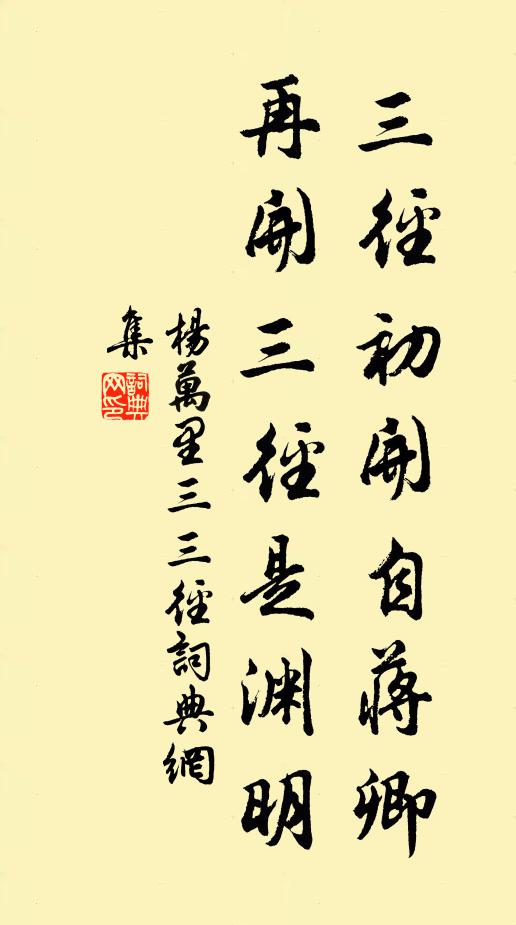 三徑初開自蔣卿
再開三徑是淵明
楊萬里三三徑詞典網
集
詞典
网印